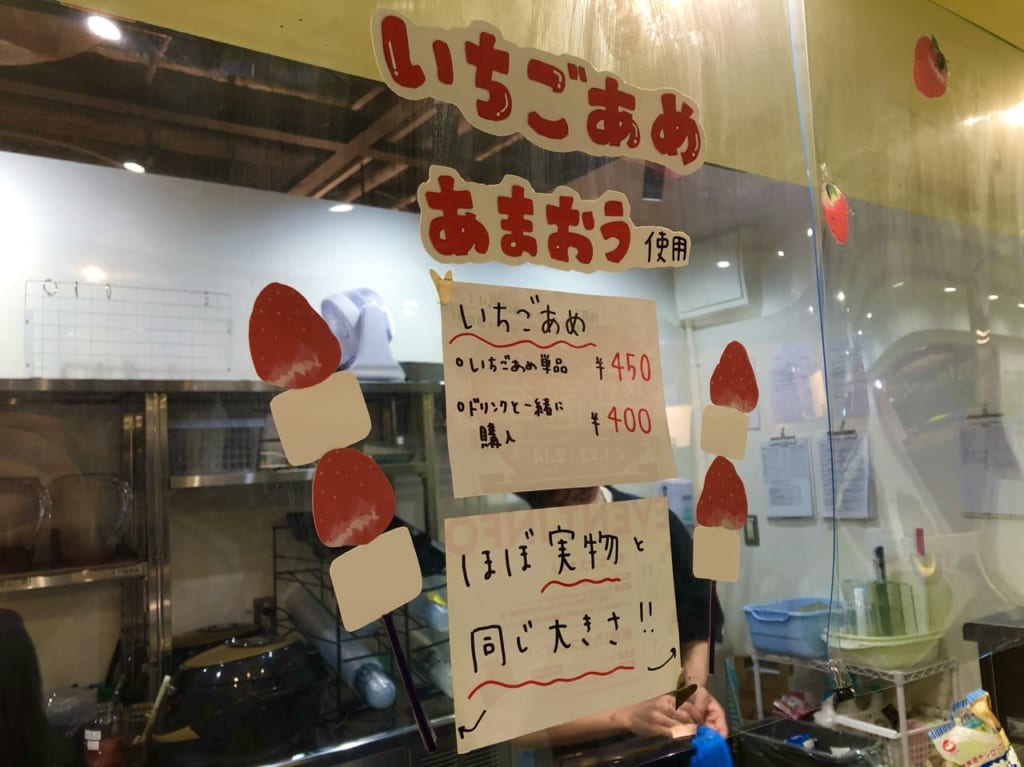 いちごあめ
あまおう使用
いちごあめ
○いちごあめ単品 ¥450
○ドリンクと一緒に
購入 ¥400
ほぼ実物と
同じ大きさ!!